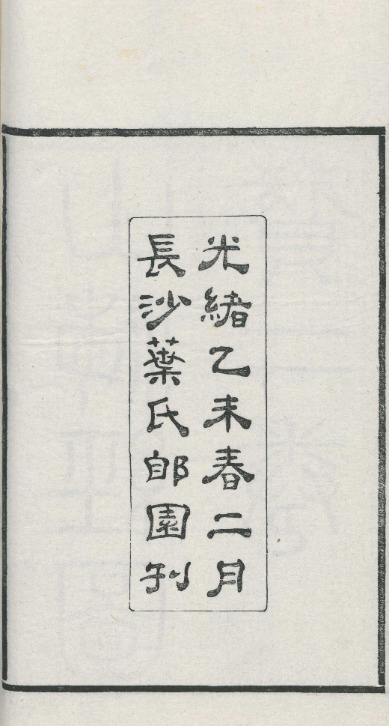 光緒乙未春二月
長沙葉氏郋園刋